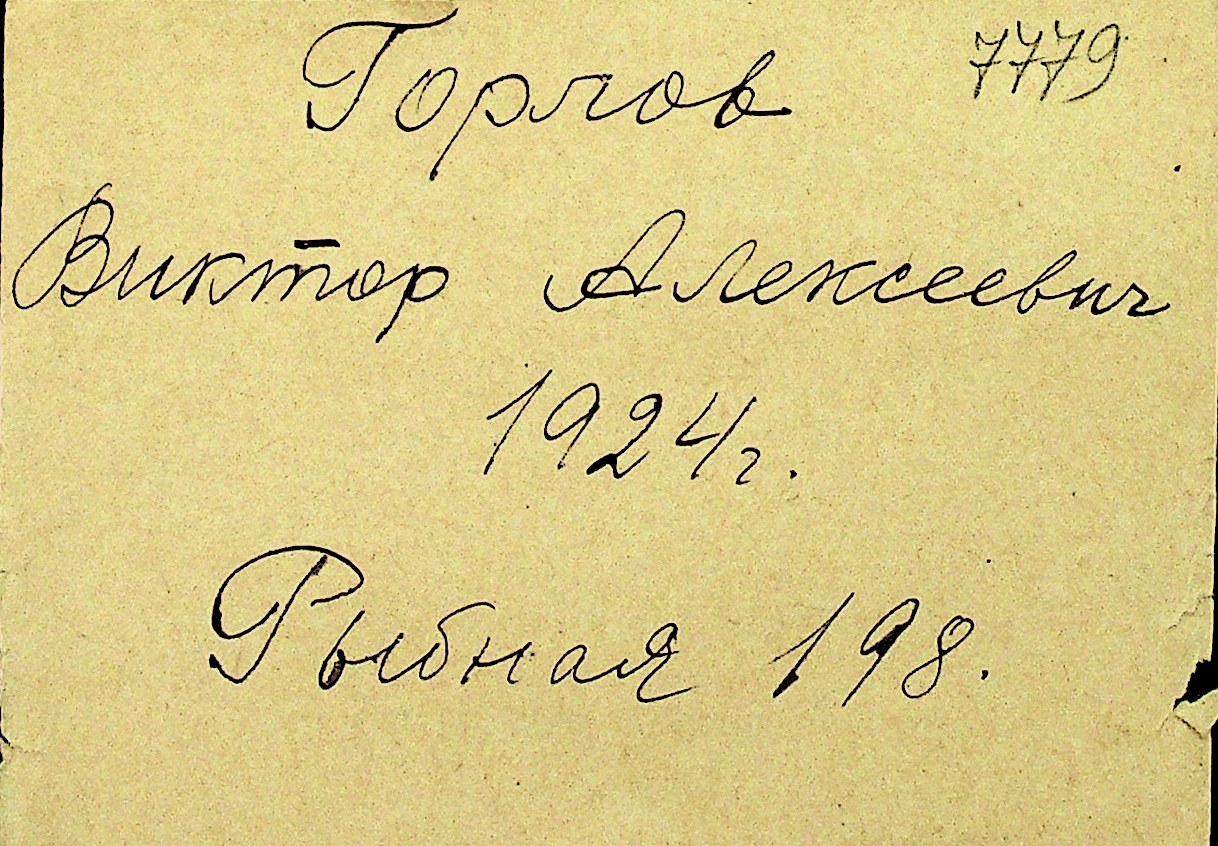 7779
Горлов
Виктор Алексеевич
1924г.
Рыбная 198.